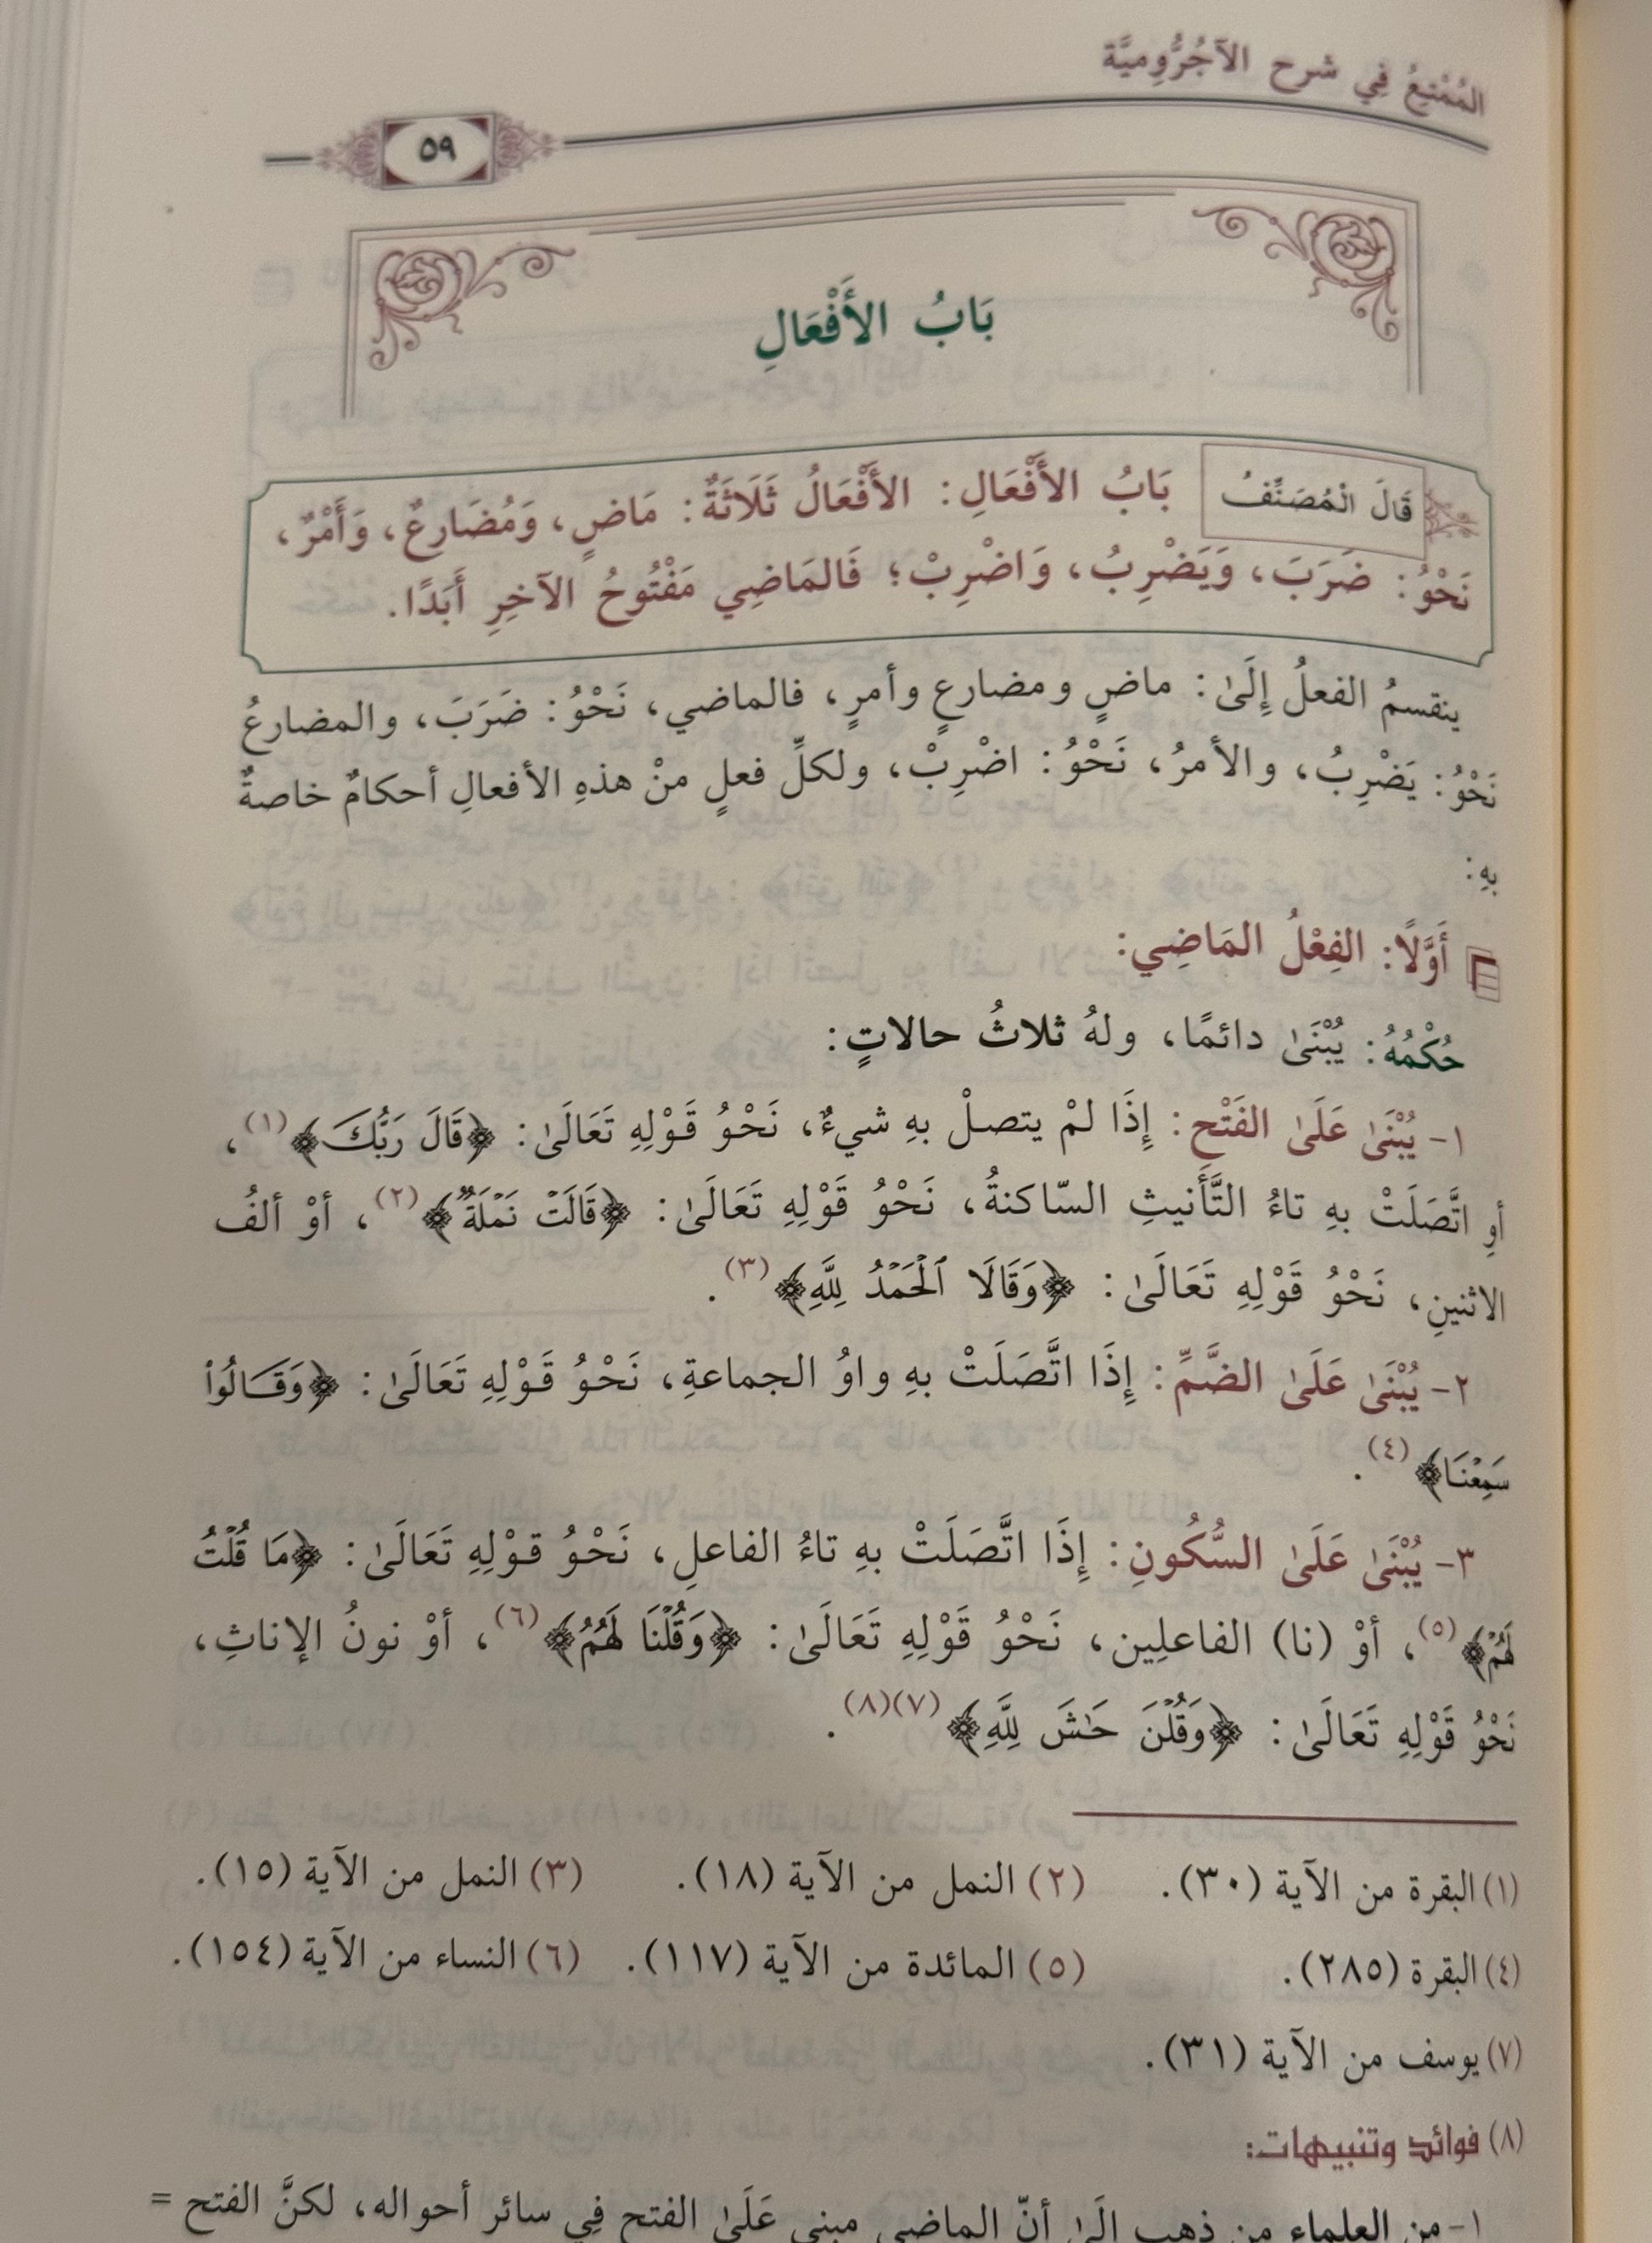 المُمْتِعُ فِي شرح الآجُرُّومِيَّة
٥٩
بَابُ الأَفْعَالِ
قَالَ الْمُصَنِّفُ بَابُ الأَفْعَالِ: الأَفْعَالُ ثَلَاثَةٌ: مَاضٍ، وَمُضَارِعٌ، وَأَمْرٌ،
نَحْوُ: ضَرَبَ، وَيَضْرِبُ، وَاضْرِبْ؛ فَالمَاضِي مَفْتُوحُ الآخِرِ أَبَدًا.
ينقسمُ الفعلُ إِلَىٰ: ماضٍ ومضارعٍ وأمرٍ، فالماضي، نَحْوُ: ضَرَبَ، والمضارعُ
نَحْوُ: يَضْرِبُ، والأمرُ، نَحْوُ: اضْرِبْ، ولكلِّ فعلٍ منْ هذهِ الأفعالِ أحكامٌ خاصةٌ
بهِ:
أَوَّلًا: الفِعْلُ المَاضِي:
حُكْمُهُ: يُبْنَىٰ دائمًا، ولهُ ثلاثُ حالاتٍ:
١- يُبْنَىٰ عَلَىٰ الفَتْحِ: إِذَا لمْ يتصلْ بهِ شيءٌ، نَحْوُ قَوْلِهِ تَعَالَىٰ: ﴿قَالَ رَبُّكَ﴾(١)،
أوِ اتَّصَلَتْ بهِ تاءُ التَّأَنيثِ السّاكنةُ، نَحْوُ قَوْلِهِ تَعَالَىٰ: ﴿قَالَتْ نَمْلَةٌ﴾(٢)، أوْ ألفُ
الاثنينِ، نَحْوُ قَوْلِهِ تَعَالَىٰ: ﴿وَقَالَا ٱلْحَمْدُ لِلَّهِ﴾(٣).
٢- يُبْنَىٰ عَلَىٰ الضَّمِّ: إِذَا اتَّصَلَتْ بهِ واوُ الجماعةِ، نَحْوُ قَوْلِهِ تَعَالَىٰ: ﴿وَقَالُوا۟
سَمِعْنَا﴾(٤).
٣- يُبْنَىٰ عَلَىٰ السُّكُونِ: إِذَا اتَّصَلَتْ بهِ تاءُ الفاعلِ، نَحْوُ قوْلِهِ تَعَالَىٰ: ﴿مَا قُلْتُ
لَهُمْ﴾(٥)، أوْ (نا) الفاعلِين، نَحْوُ قَوْلِهِ تَعَالَىٰ: ﴿وَقُلْنَا لَهُمُ﴾(٦)، أوْ نونُ الإناثِ،
نَحْوُ قَوْلِهِ تَعَالَىٰ: ﴿وَقُلْنَ حَٰشَ لِلَّهِ﴾(٧)(٨).
(١) البقرة من الآية (٣٠). (٢) النمل من الآية (١٨). (٣) النمل من الآية (١٥).
(٤) البقرة (٢٨٥). (٥) المائدة من الآية (١١٧). (٦) النساء من الآية (١٥٤).
(٧) يوسف من الآية (٣١).
(٨) فوائد وتنبيهات:
١- من العلماء من ذهب إلَىٰ أنّ الماضي مبني عَلَىٰ الفتح فِي سائر أحواله، لكنَّ الفتح =